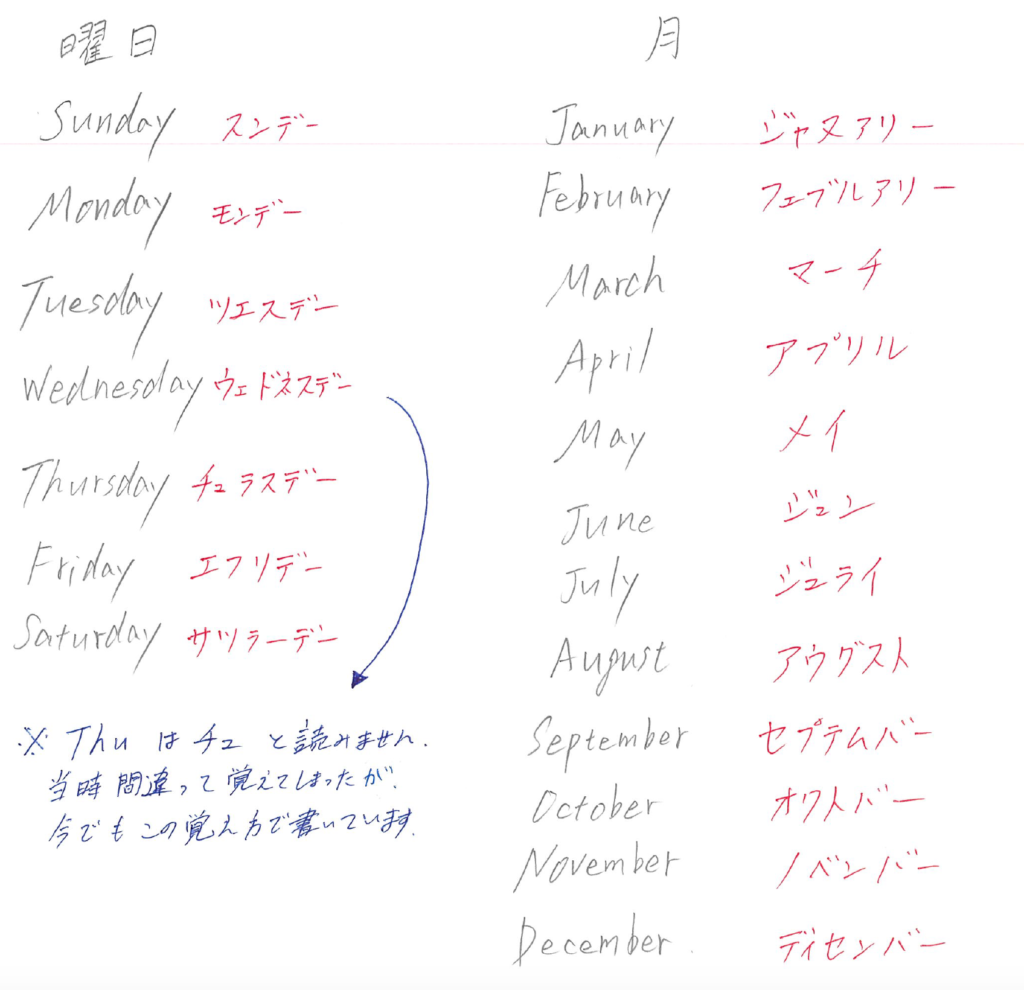 曜日
Sunday スンデー
Monday モンデー
Tuesday ツエスデー
Wednesday ウェドネスデー
Thursday チュラスデー
Friday エフリデー
Saturday サツラーデー
※ Thu は チュ と読みません.
当時 間違って 覚えてしまったが.
今でも この 覚え方で 書いています.
月
January ジャヌアリー
February フェブルアリー
March マーチ
April アプリル
May メイ
June ジュン
July ジュライ
August アウグスト
September セプテムバー
October オクトバー
November ノベンバー
December ディセンバー